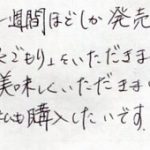 一週間ほどしか発売
ごもりぅをいただきま
美味しくいただきまし
も購入したいです。